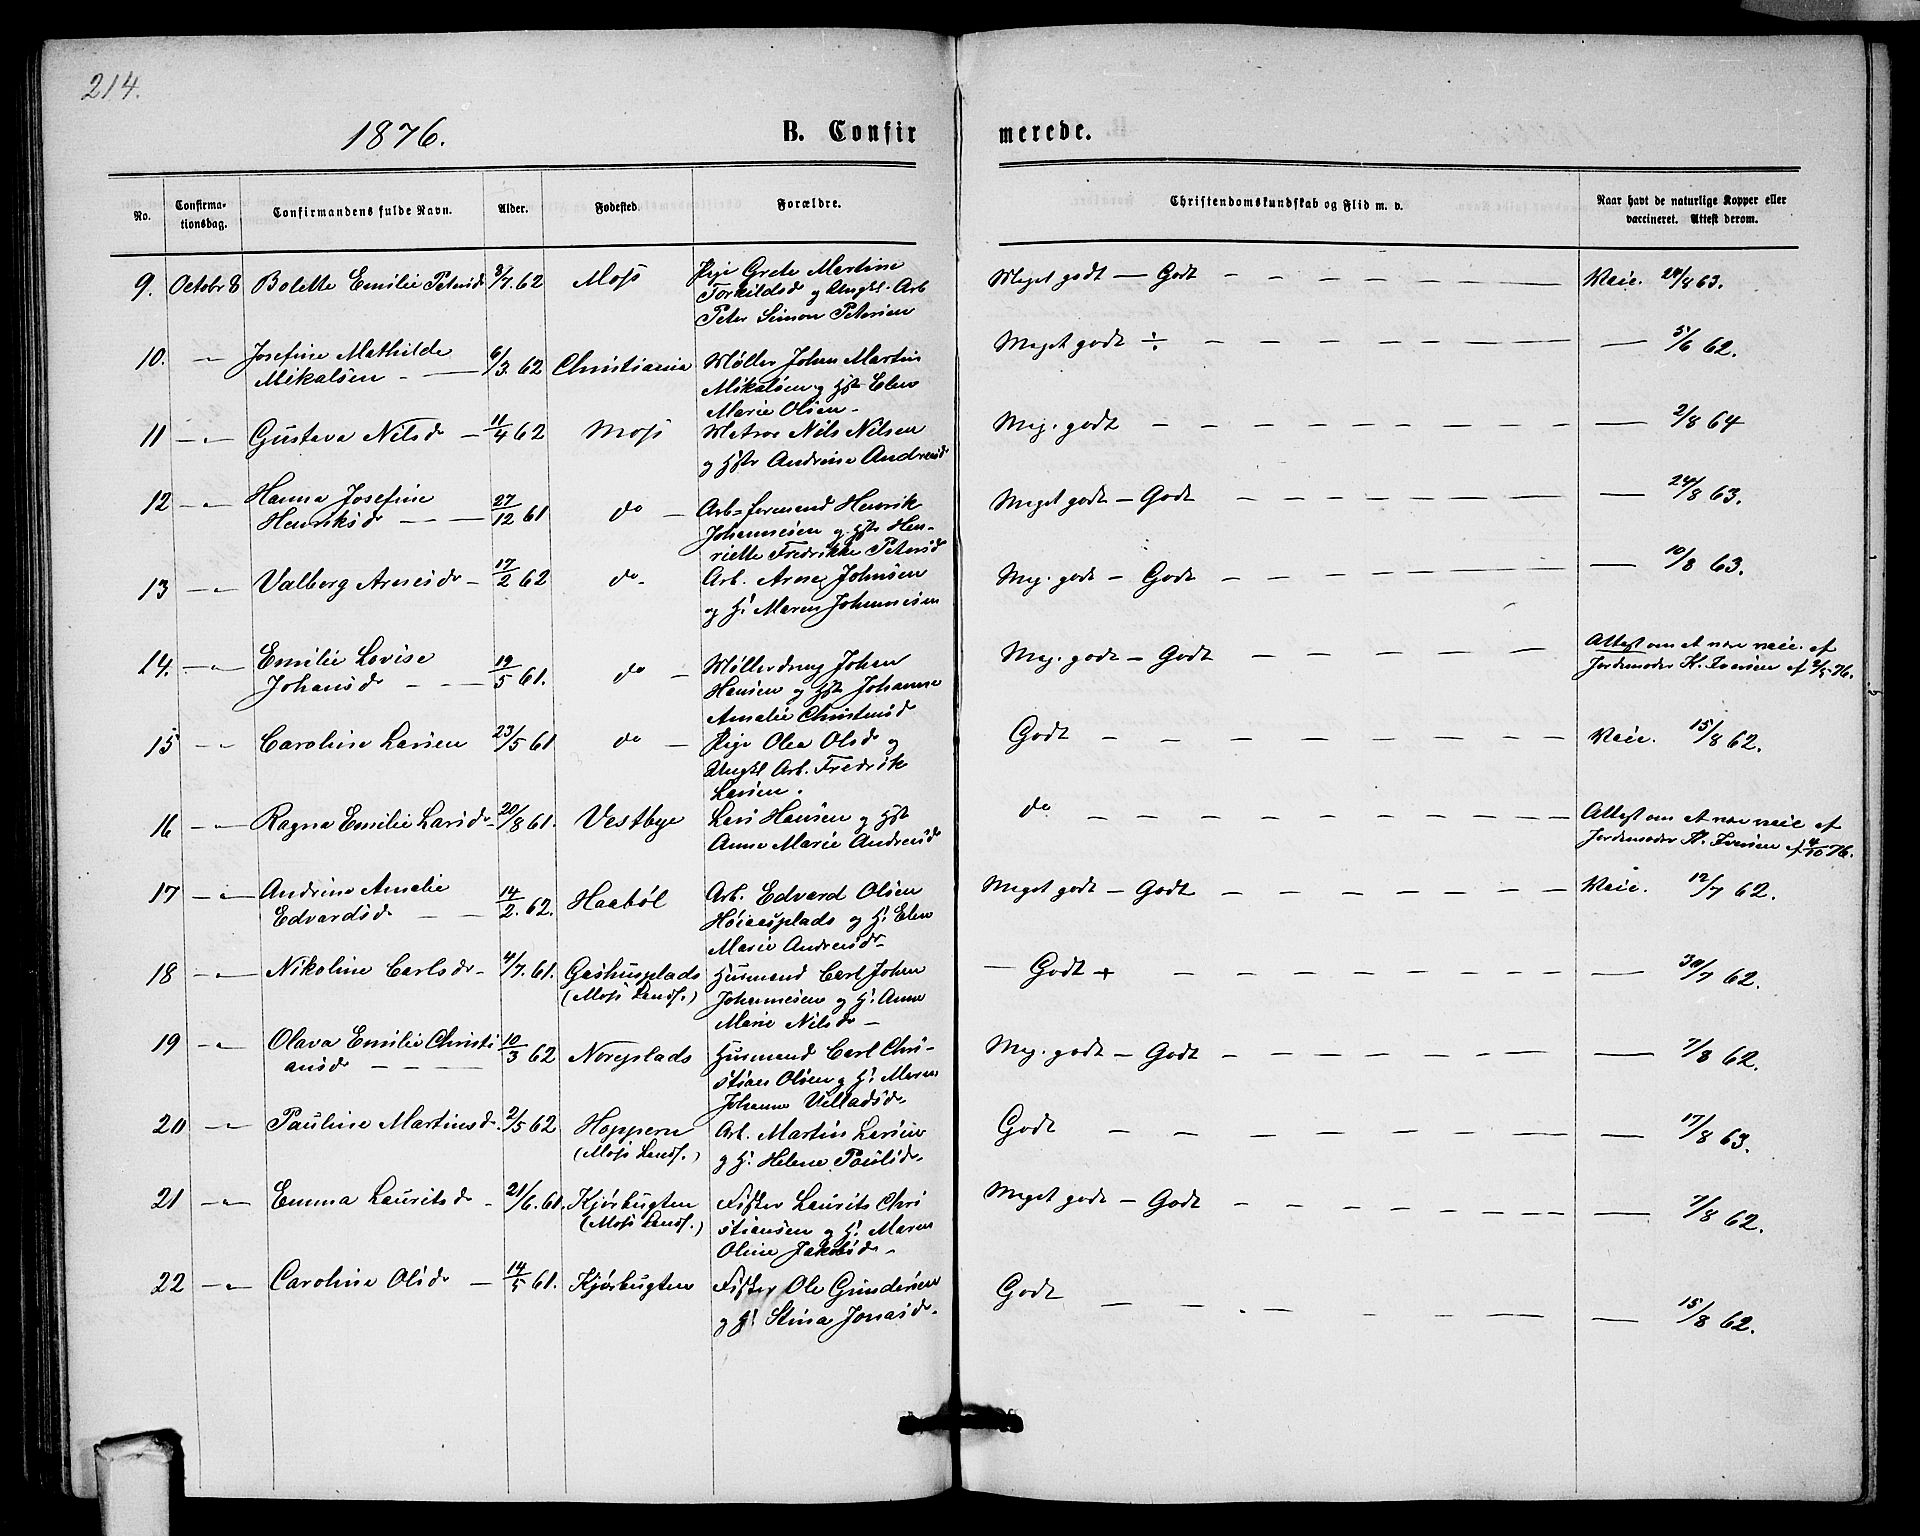 214.
1876.
B. Confirmerede.
No. | Confirma-tionsdag. | Confirmandens fulde Navn. | Alder. | Fødested. | Forældre. | Christendomskundskab og Flid m. v. | Naar havt de naturlige Kopper eller vaccineret. Attest derom.
9. Octobr 8 Bolette Emilie Petersd. 3/7 62 Moss Pige Grete Martine Meget godt — Godt Vacc. 24/8 63.
Torkildsd. og Ungkl. Arb.
Peter Simon Petersen
10. — " — Josefine Mathilde 6/3. 62 Christiania Møller Johan Martin Meget godt ÷ — 5/6 62.
Mikalsen — Mikalsen og Hst. Elen
Marie Olsen —
11 — " — Gustava Nilsd. — 11/4 62 Moss Matros Nils Nilsen Meg. godt — 2/8 64
og Hstr Andrine Andreasd.
12 — " — Hanna Josefine 27/12 61 do — Arb=formand Henrik Meget godt — Godt — 24/8 63.
Henriksd. — Johannesen og Hstr Hen-
riette Fredrikke Petersd.
13 — " — Valborg Arnesd. — 17/2 62 do — Arb. Arne Johnsen Meg. godt — Godt — 10/8 63.
og H. Maren Johannesen
14. — " — Emilie Lovise 19/5 61. do — Møllerdreng Johan Meg. godt — Godt Attest om at være vacc. af
Johansd. — Hansen og Hst. Johanne Jordemoder K. Iversen af 2/5 76.
Amalie Christensd.
15 — " — Caroline Larsen 23/5 61 do — Pige Olea Olsd. og Godt Vacc. 15/8 62.
Ungkl. Arb. Fredrik
Larsen.
16 — " — Ragna Emilie Larsd. 20/8 61. Vestbye Lars Hansen og Hst. do Attest om at være vacc. af
Anne Marie Andreasd. Jordemoder K. Iversen af 4/10 76.
17 — " — Andrine Amalie 14/2. 62. Haabøl Arb. Edvard Olsen Meget godt — Godt Vacc. 12/7 62.
Edvardsd. — Høieasplads og H. Elen
Marie Andreasd. —
18 — " — Nikoline Carlsd. — 4/7. 61. Gashusplads Husmand Carl Johan — Godt + — 30/7 62.
(Moss Lands.) Johannesen og H. Anne
Marie Nilsd. —
19 — " — Olava Emilie Christi 10/3 62 Noreplads Husmand Carl Chri- Meg. godt — Godt — 7/8 62.
ansd. — stian Olsen og H. Maren
Johanne Villadsd. —
20 — " — Pauline Martinsd. 2/5 62 Hoppern Arb. Martin Larsen Godt — 17/8 63.
(Moss Lands.) og H. Helene Paulsd. —
21 — " — Emma Lauritsd. — 21/6. 61. Kjørbugten Fisker Laurits Chri Meget godt — Godt — 7/8 62.
(Moss Lands.) stiansen og H. Maren
Oline Jakobsd. —
22 — " — Caroline Olsd. — 14/5 61. Kjørbugten Fisker Ole Gundersen Godt — 15/8 62.
og H. Stina Jonasd. —